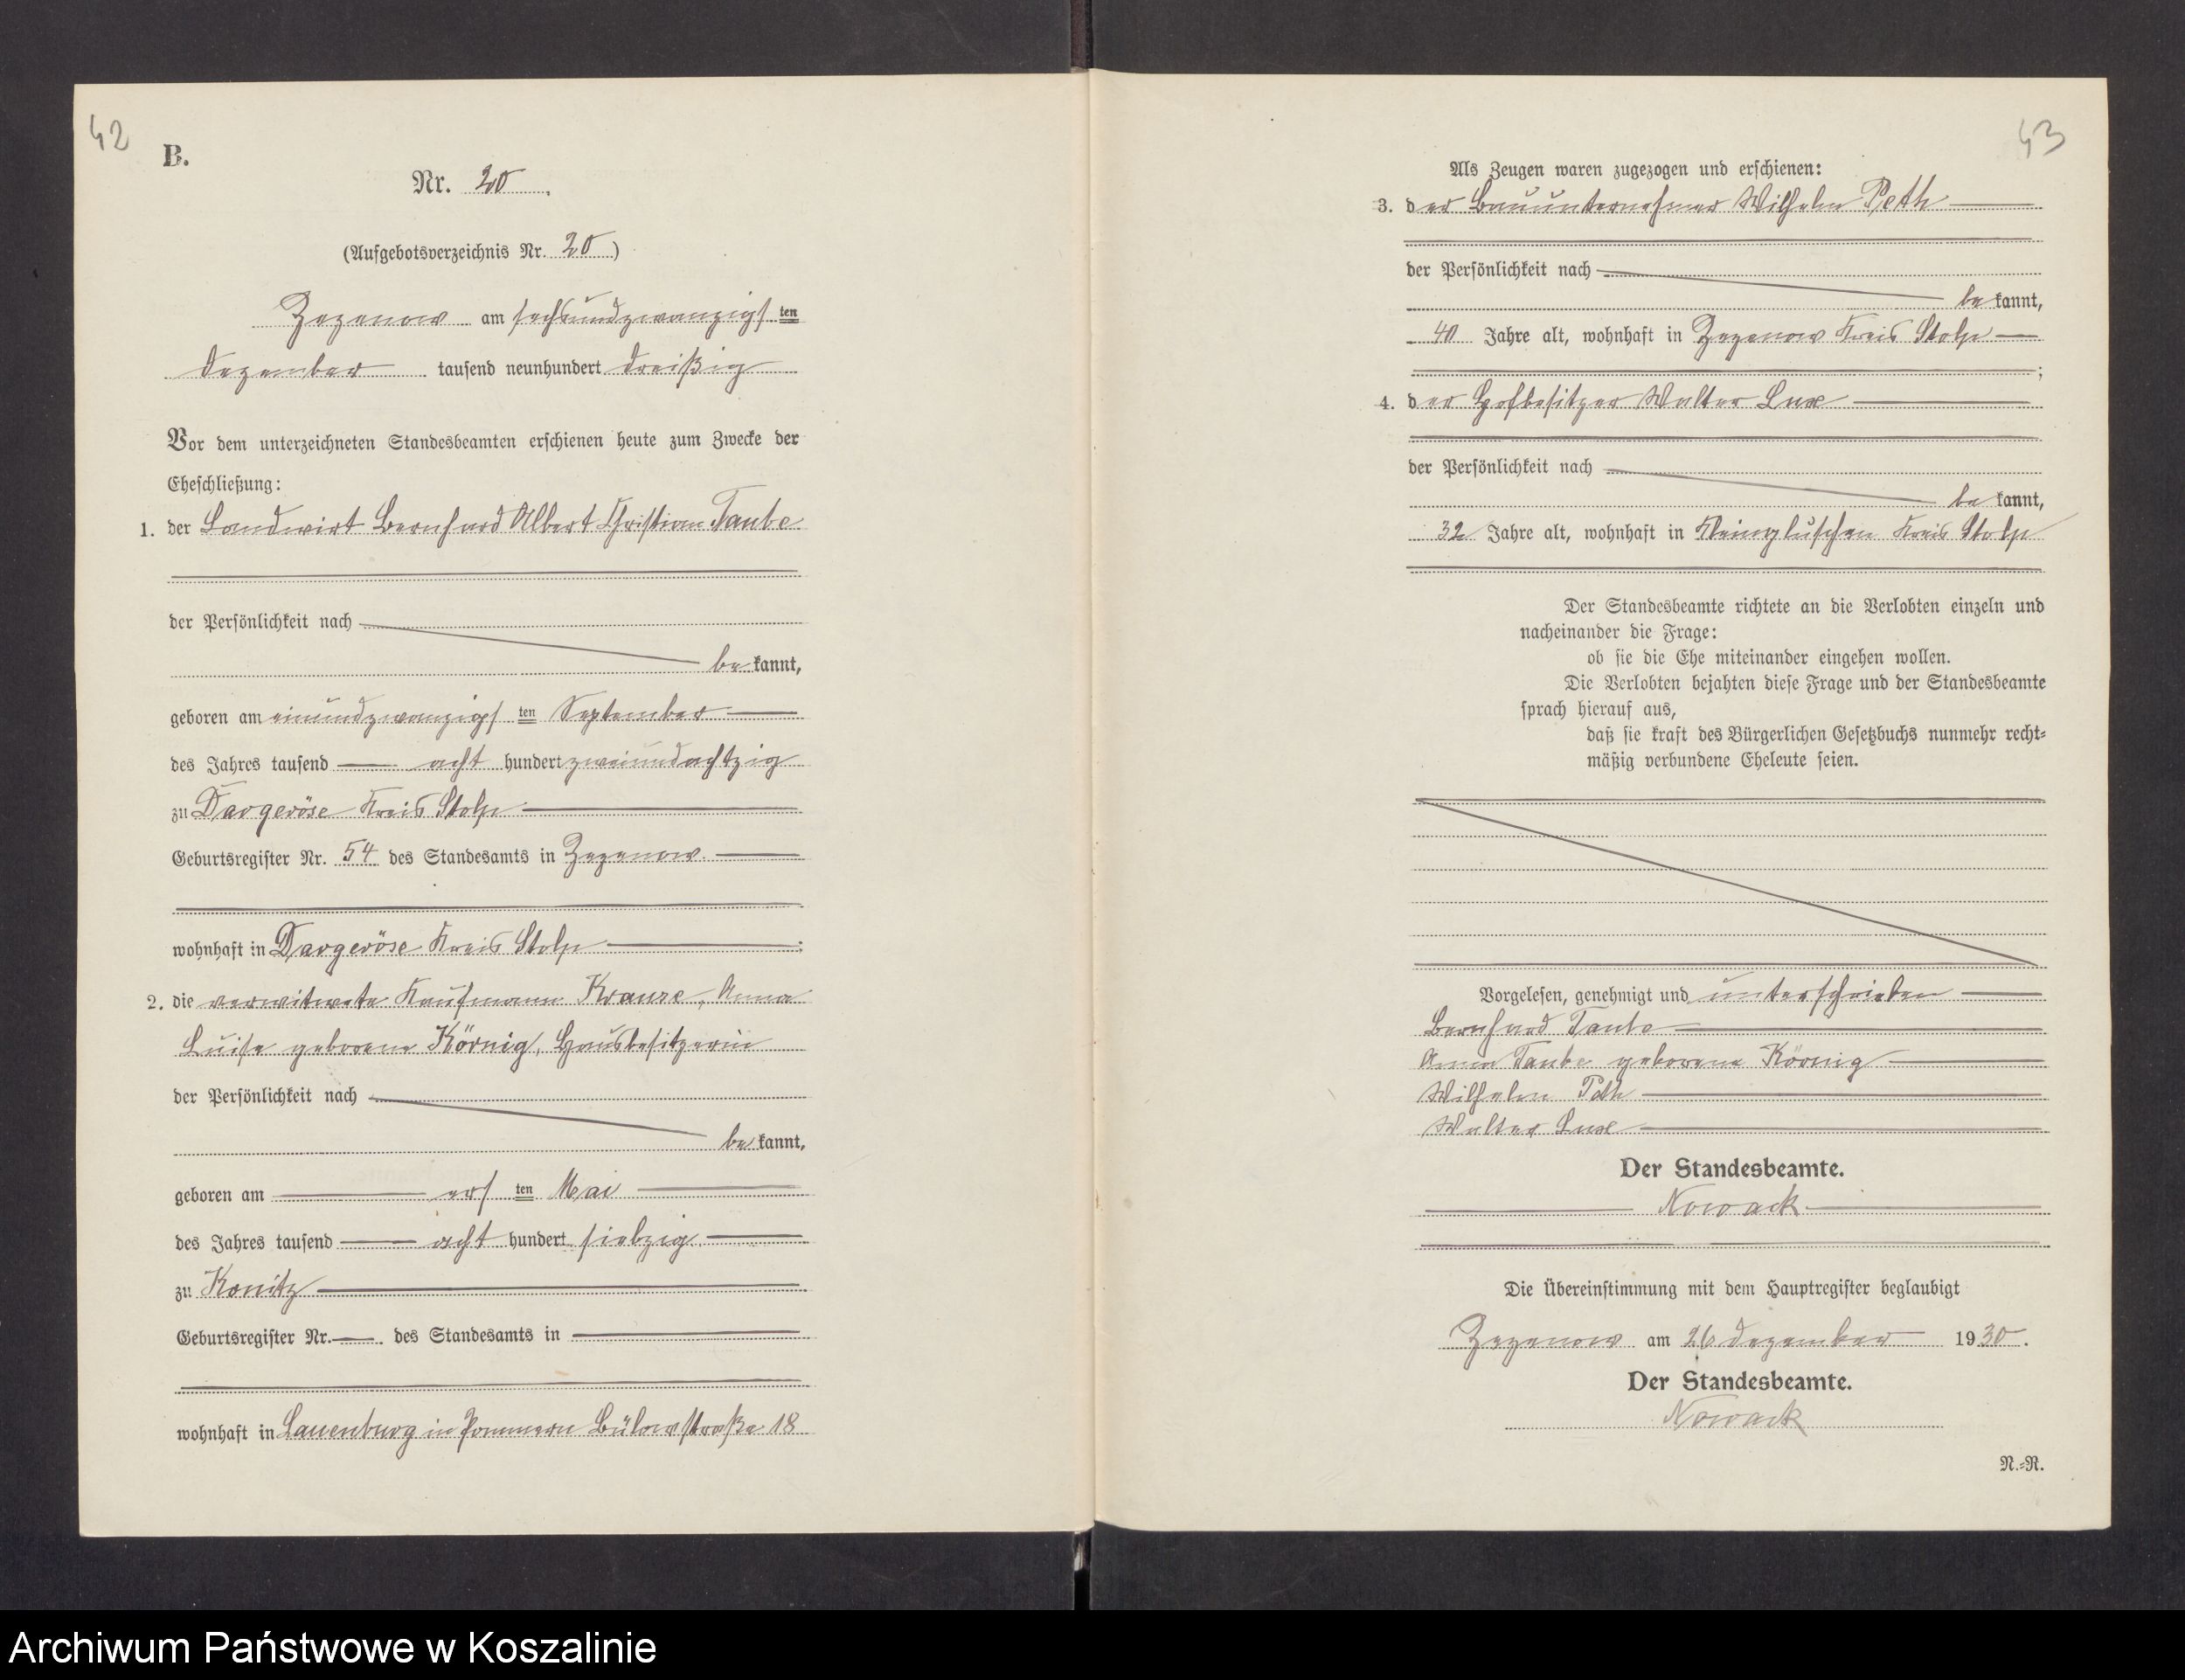 42
B.
Nr. 20.
(Aufgebotsverzeichnis Nr. 20)
Zezenow am sechsundzwanzigsten
Dezember tausend neunhundert dreißig
Vor dem unterzeichneten Standesbeamten erschienen heute zum Zwecke der
Eheschließung:
1. der Landwirt Bernhard Albert Christian Taube
der Persönlichkeit nach
bekannt,
geboren am einundzwanzigsten September
des Jahres tausend acht hundert zweiundachtzig
zu Dargeröse Kreis Stolp
Geburtsregister Nr. 54 des Standesamts in Zezenow
wohnhaft in Dargeröse Kreis Stolp;
2. die verwitwete Kaufmann Krause, Anna
Luise geborene Körnig, Hausbesitzerin
der Persönlichkeit nach
bekannt,
geboren am ersten Mai
des Jahres tausend acht hundert siebzig
zu Konitz
Geburtsregister Nr. des Standesamts in
wohnhaft in Lauenburg in Pommern Bülowstraße 18
43
Als Zeugen waren zugezogen und erschienen:
3. der Bauunternehmer Wilhelm Peth
der Persönlichkeit nach
bekannt,
40 Jahre alt, wohnhaft in Zezenow Kreis Stolp
;
4. der Hofbesitzer Walter Lux
der Persönlichkeit nach
bekannt,
32 Jahre alt, wohnhaft in Kleingluschen Kreis Stolp
Der Standesbeamte richtete an die Verlobten einzeln und
nacheinander die Frage:
ob sie die Ehe miteinander eingehen wollen.
Die Verlobten bejahten diese Frage und der Standesbeamte
sprach hierauf aus,
daß sie kraft des Bürgerlichen Gesetzbuchs nunmehr recht-
mäßig verbundene Eheleute seien.
Vorgelesen, genehmigt und unterschrieben
Bernhard Taube
Anna Taube geborene Körnig
Wilhelm Peth
Walter Lux
Der Standesbeamte.
Nowack
Die Übereinstimmung mit dem Hauptregister beglaubigt
Zezenow am 26 Dezember 1930.
Der Standesbeamte.
Nowack
N.-R.
Archiwum Państwowe w Koszalinie